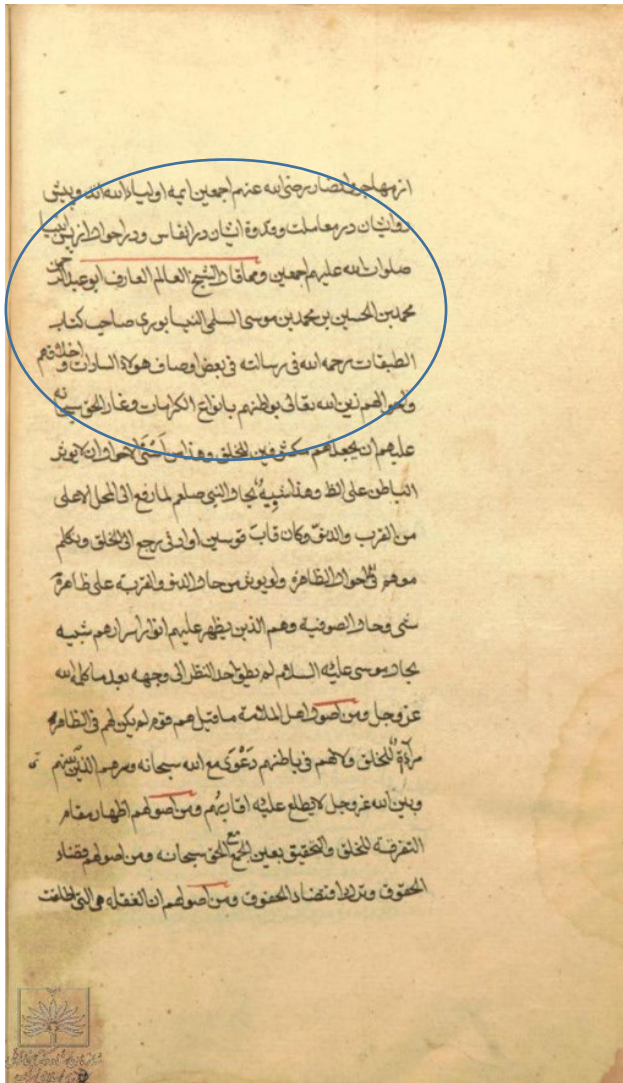 از مهاجر و انصار رضی الله عنهم اجمعین ایمه اولیاء الله اند و پیش
روایشان در معاملت و قدوة ایشان در انفاس و در احوال از پس انبیا
صلوات الله علیهم اجمعین و مما قال الشیخ العالم العارف ابو عبد الرحمن
محمد بن الحسین بن محمد بن موسی السلمی النیسابوری صاحب کتاب
الطبقات رحمه الله فی رسالته فی بعض اوصاف هولاء السادات و اخلاقهم
و احوالهم زین الله تعالی بواطنهم بانواع الکرامات و غار الحق سبحانه
علیهم ان یجعلهم مکشوفین للخلق و هذا من اسنی الاحوال ان لا یوثر
الباطن علی الظ و هذا شبیه بحال النبی صلعم لما رفع الی المحل الاعلی
من القرب والدنو و کان قاب قوسین او ادنی رجع الی الخلق و تکلم
معهم فی احوال الظاهرة و لم یوثر من حال الدنو والقربة علی ظاهرة
شی و حال الصوفیة و هم الذین یظهر علیهم انوار اسرارهم شبیه
بحال موسی علیه السلام لم یطق احد النظر الی وجهه بعد ما کلمه الله
عز و جل و من اصول اهل الملامة ما قیل هم قوم لم یکن لهم فی الظاهرة
مرآءة للخلق و لا هم فی باطنهم دعوی مع الله سبحانه و سرهم الذی بینهم
و بین الله عز و جل لا یطلع علیه اقاربهم و من اصولهم اظهار مقام
التفرقة للخلق والتحقیق بعین الجمع مع الحق سبحانه و من اصولهم قضاء
الحقوق و ترک اقتضاء الحقوق و من اصولهم ان الغفلة هی التی اطلقت